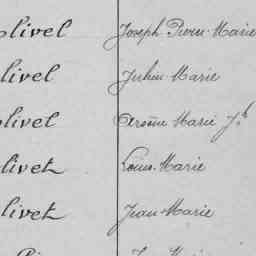 olivel Joseph Pierre Marie
livel Julien Marie
olivel Marie Jh
livet Louis-Marie
livet Jean-Marie